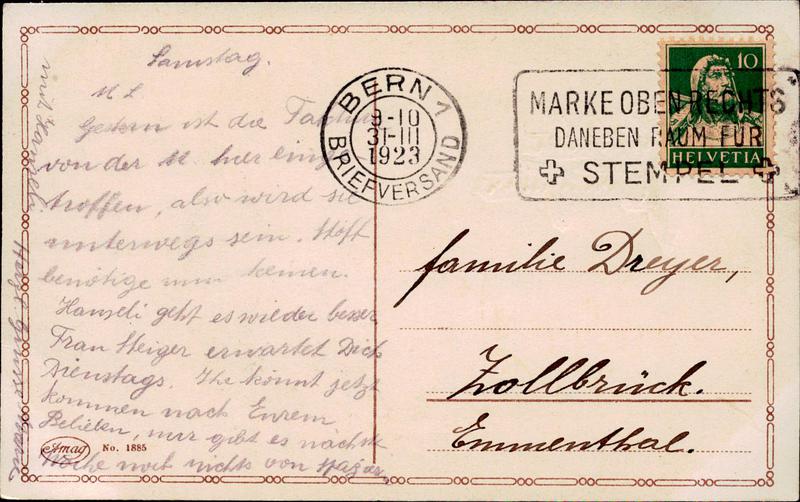 Samstag.
M L
Gestern ist die
von der M hier einge
troffen, also wird sie
unterwegs sein. Stoff
benötige nun keinen.
Hanseli geht es wieder besser
Frau Steiger erwartet Dich
Dienstags. Ihr könnt jetzt
kommen nach Eurem
Belieben, nur gibt es nächste
Woche noch nichts von
mit Hanseli
Amag No. 1885
BERN 1
9-10
31·III
1923
BRIEFVERSAND
MARKE OBEN RECHTS
DANEBEN RAUM FÜR
STEMPEL
10
HELVETIA
Familie Dreyer,
Zollbrück.
Emmenthal.